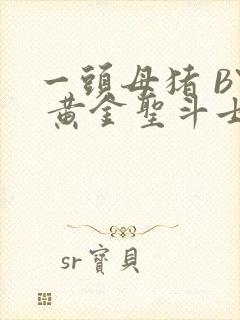 一頭母猪 BY
黄金聖斗士
sr寶貝